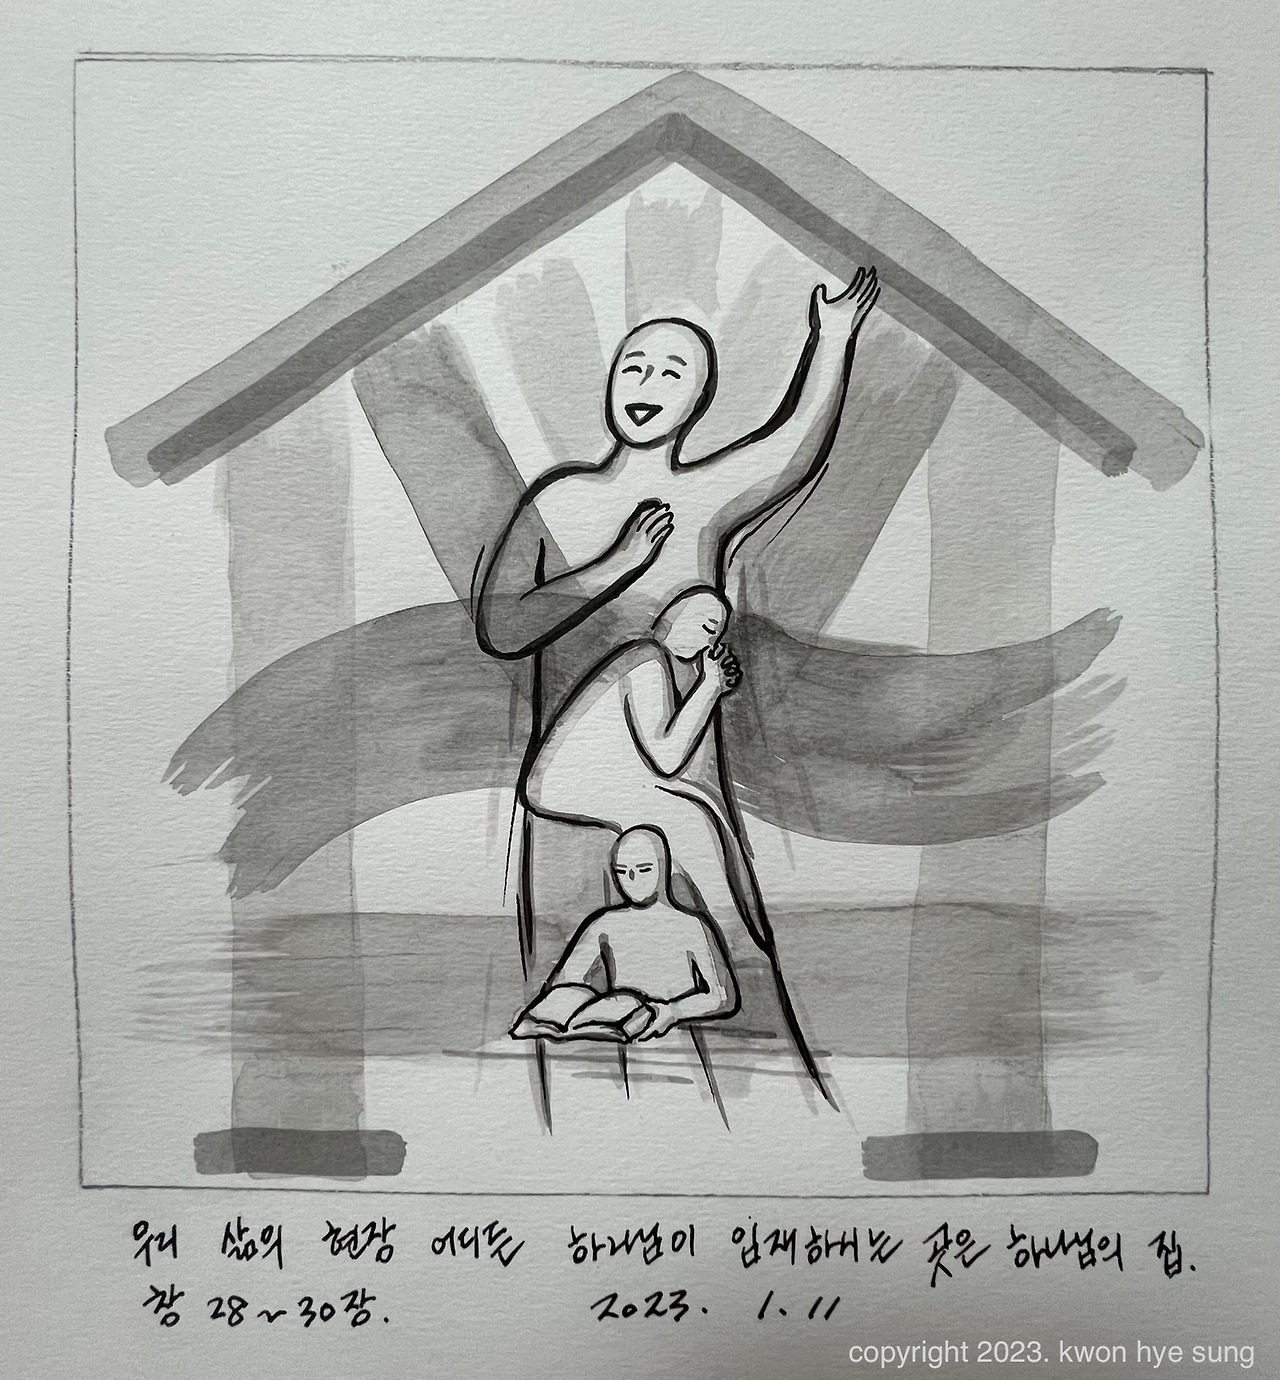 우리 삶의 현장 어디든 하나님이 임재하시는 곳은 하나님의 집.
창 28~30장. 2023. 1. 11
copyright 2023. kwon hye sung